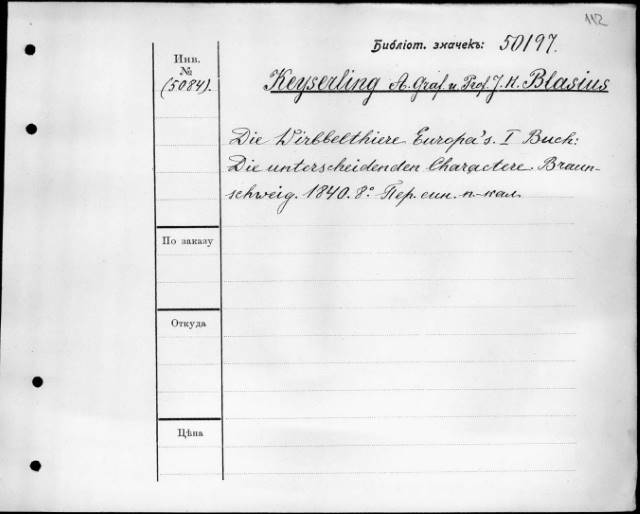 112
Библіот. значекъ: 50197.
Инв.
№
(5084).
Keyserling A. Graf. u. Prof. J. H. Blasius
Die Wirbbelthiere Europa's. I Buch:
Die unterscheidenden Charactere. Braun-
schweig. 1840. 8° Пер. син. п-кал.
По заказу
Откуда
Цѣна